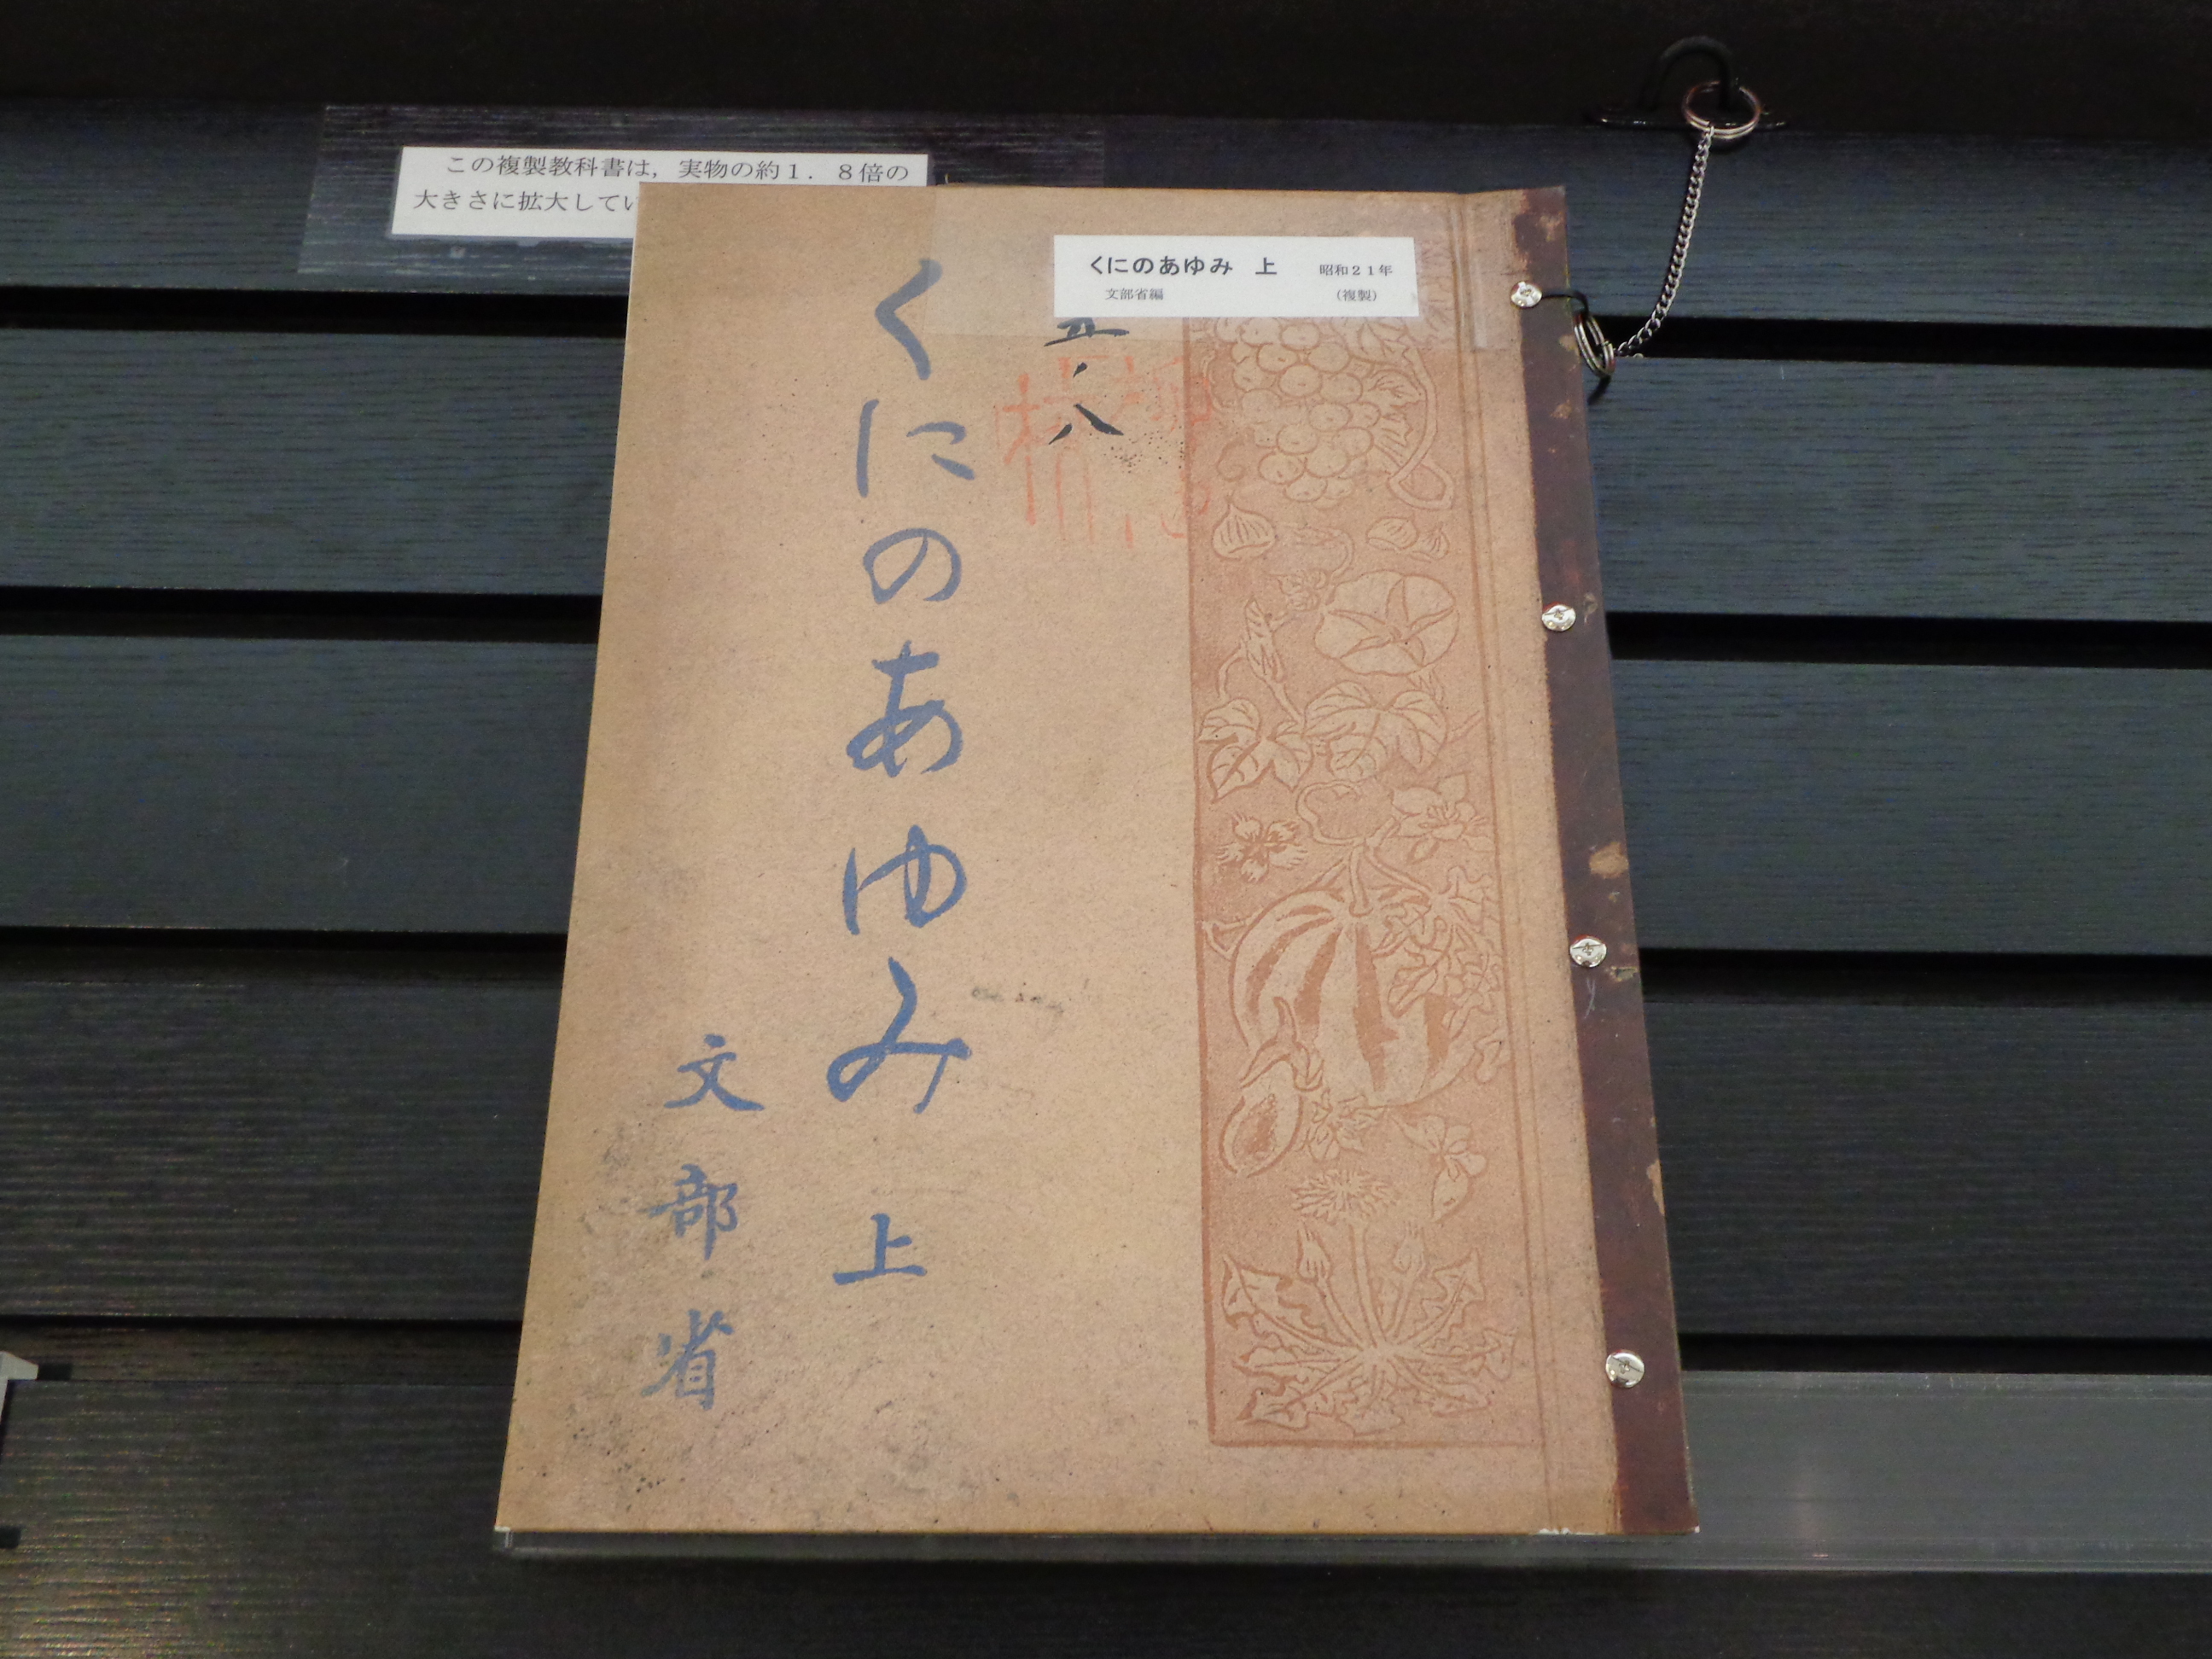 この複製教科書は，実物の約１．８倍の
大きさに拡大してい
くにのあゆみ　上　昭和２１年
文部省編　（複製）
五ノ八
くにのあゆみ 上
文部省